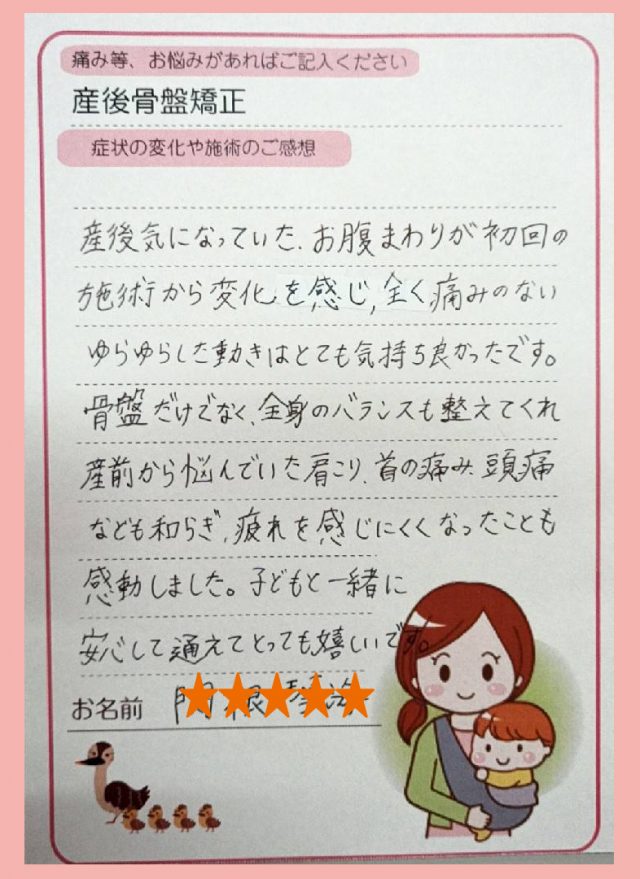 痛み等、お悩みがあればご記入ください
産後骨盤矯正
症状の変化や施術のご感想
産後気になっていた、お腹まわりが初回の
施術から変化を感じ、全く痛みのない
ゆらゆらした動きはとても気持ち良かったです。
骨盤だけでなく、全身のバランスも整えてくれ
産前から悩んでいた肩こり、首の痛み、頭痛
なども和らぎ、疲れを感じにくくなったことも
感動しました。子どもと一緒に
安心して通えてとっても嬉しいです。
お名前